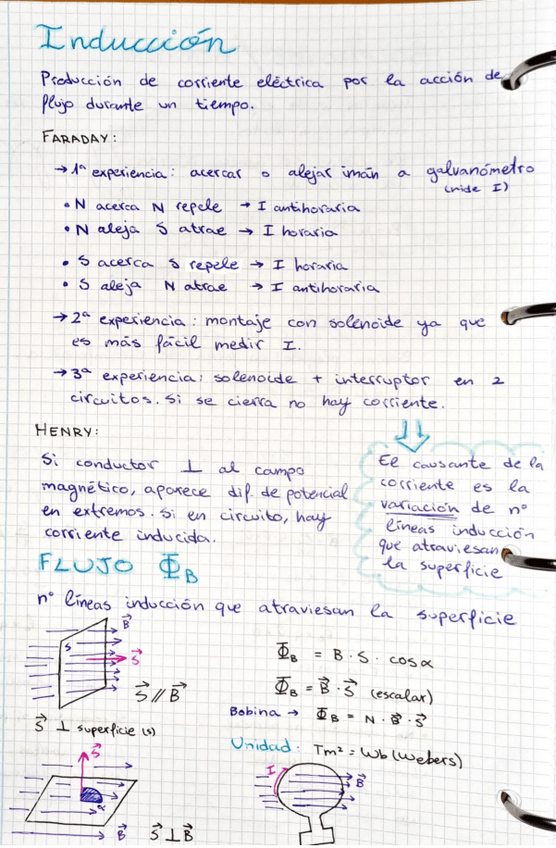 Inducción
Producción de corriente eléctrica por la acción de
flujo durante un tiempo.
FARADAY:
→ 1ª experiencia: acercar o alejar imán a galvanómetro
(mide I)
• N acerca N repele → I antihoraria
• N aleja S atrae → I horaria
• S acerca S repele → I horaria
• S aleja N atrae → I antihoraria
→ 2ª experiencia: montaje con solenoide ya que
es más fácil medir I.
→ 3ª experiencia: solenoide + interruptor en 2
circuitos. Si se cierra no hay corriente.
HENRY:
Si conductor ⊥ al campo
magnético, aparece dif. de potencial
en extremos. Si en circuito, hay
corriente inducida.
El causante de la
corriente es la
variación de nº
líneas inducción
que atraviesan
la superficie
FLUJO Φ_B
nº líneas inducción que atraviesan la superficie
S
B⃗
S⃗
S⃗ // B⃗
S⃗ ⊥ superficie (s)
Φ_B = B · S · cos α
Φ_B = B⃗ · S⃗ (escalar)
Bobina → Φ_B = N · B⃗ · S⃗
Unidad: Tm² = Wb (Webers)
S⃗
α
B⃗
S⃗ ⊥ B⃗
I
B⃗